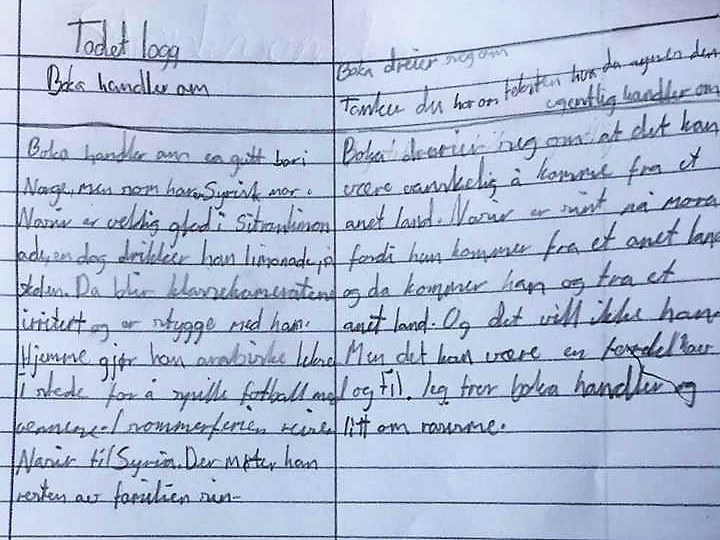 Todet logg
Boka handler om
Boka handler om en gutt bor i
Norge, men som har en Syrisk mor.
Narir er veldig glad i Sitronlimon
ade, en dag drikker han limonade på
skolen. Da blir klassekameratene
irritert og er stygge med ham.
Hjemme gjør han arabiske lekser
I stede for å spille fotball med
vennene. I sommerferien reiser
Narir til Syria. Der møter han
resten av familien sin-
Boka dreier seg om
Tanker du har om teksten hva du mener den
egentlig handler om
Boka dreier seg om at det kan
være vanskelig å komme fra et
anet land. Narir er sint på mora
fordi hun kommer fra et anet land
og da kommer han og fra et
anet land. Og det vill ikke han
Men det kan være en fordel av
og til. Jeg tror boka handler og
litt om rasisme.